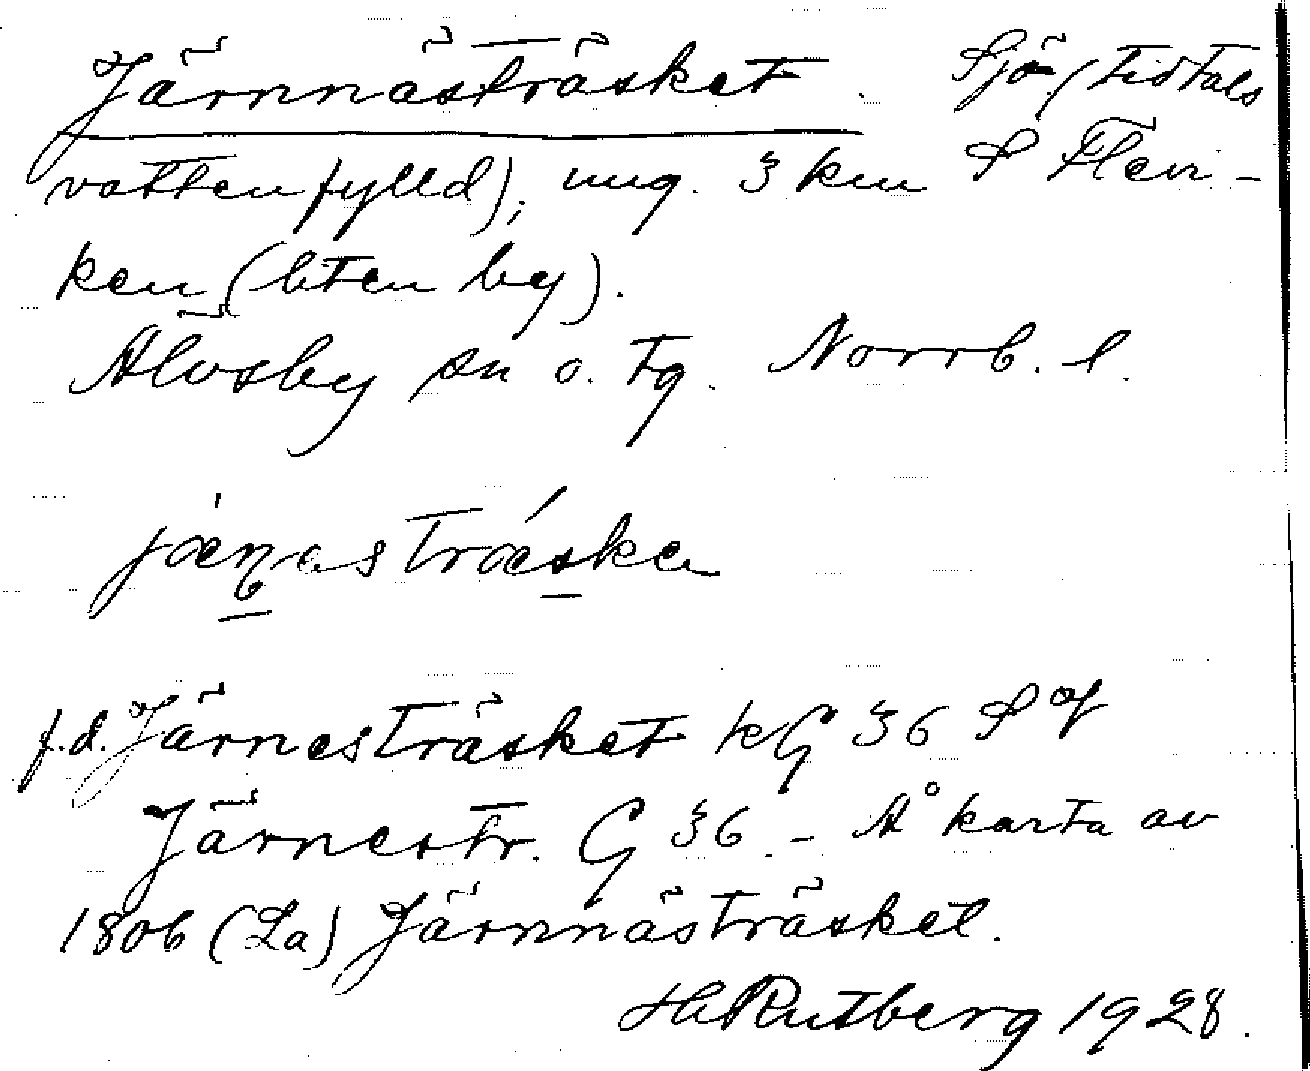 Järnnästräsket. Sjö (tidtals
vattenfylld), ung. 3 km S Flevi-
ken (liten by).
Älvsby sn o. tg. Norrb. l.
jæ̀ṇastrǽske
f.d. Järnesträsket kG 36 S
Järnestr. G 36. - Å karta av
1806 (La) Järnnästräsket.
H Rutberg 1928.